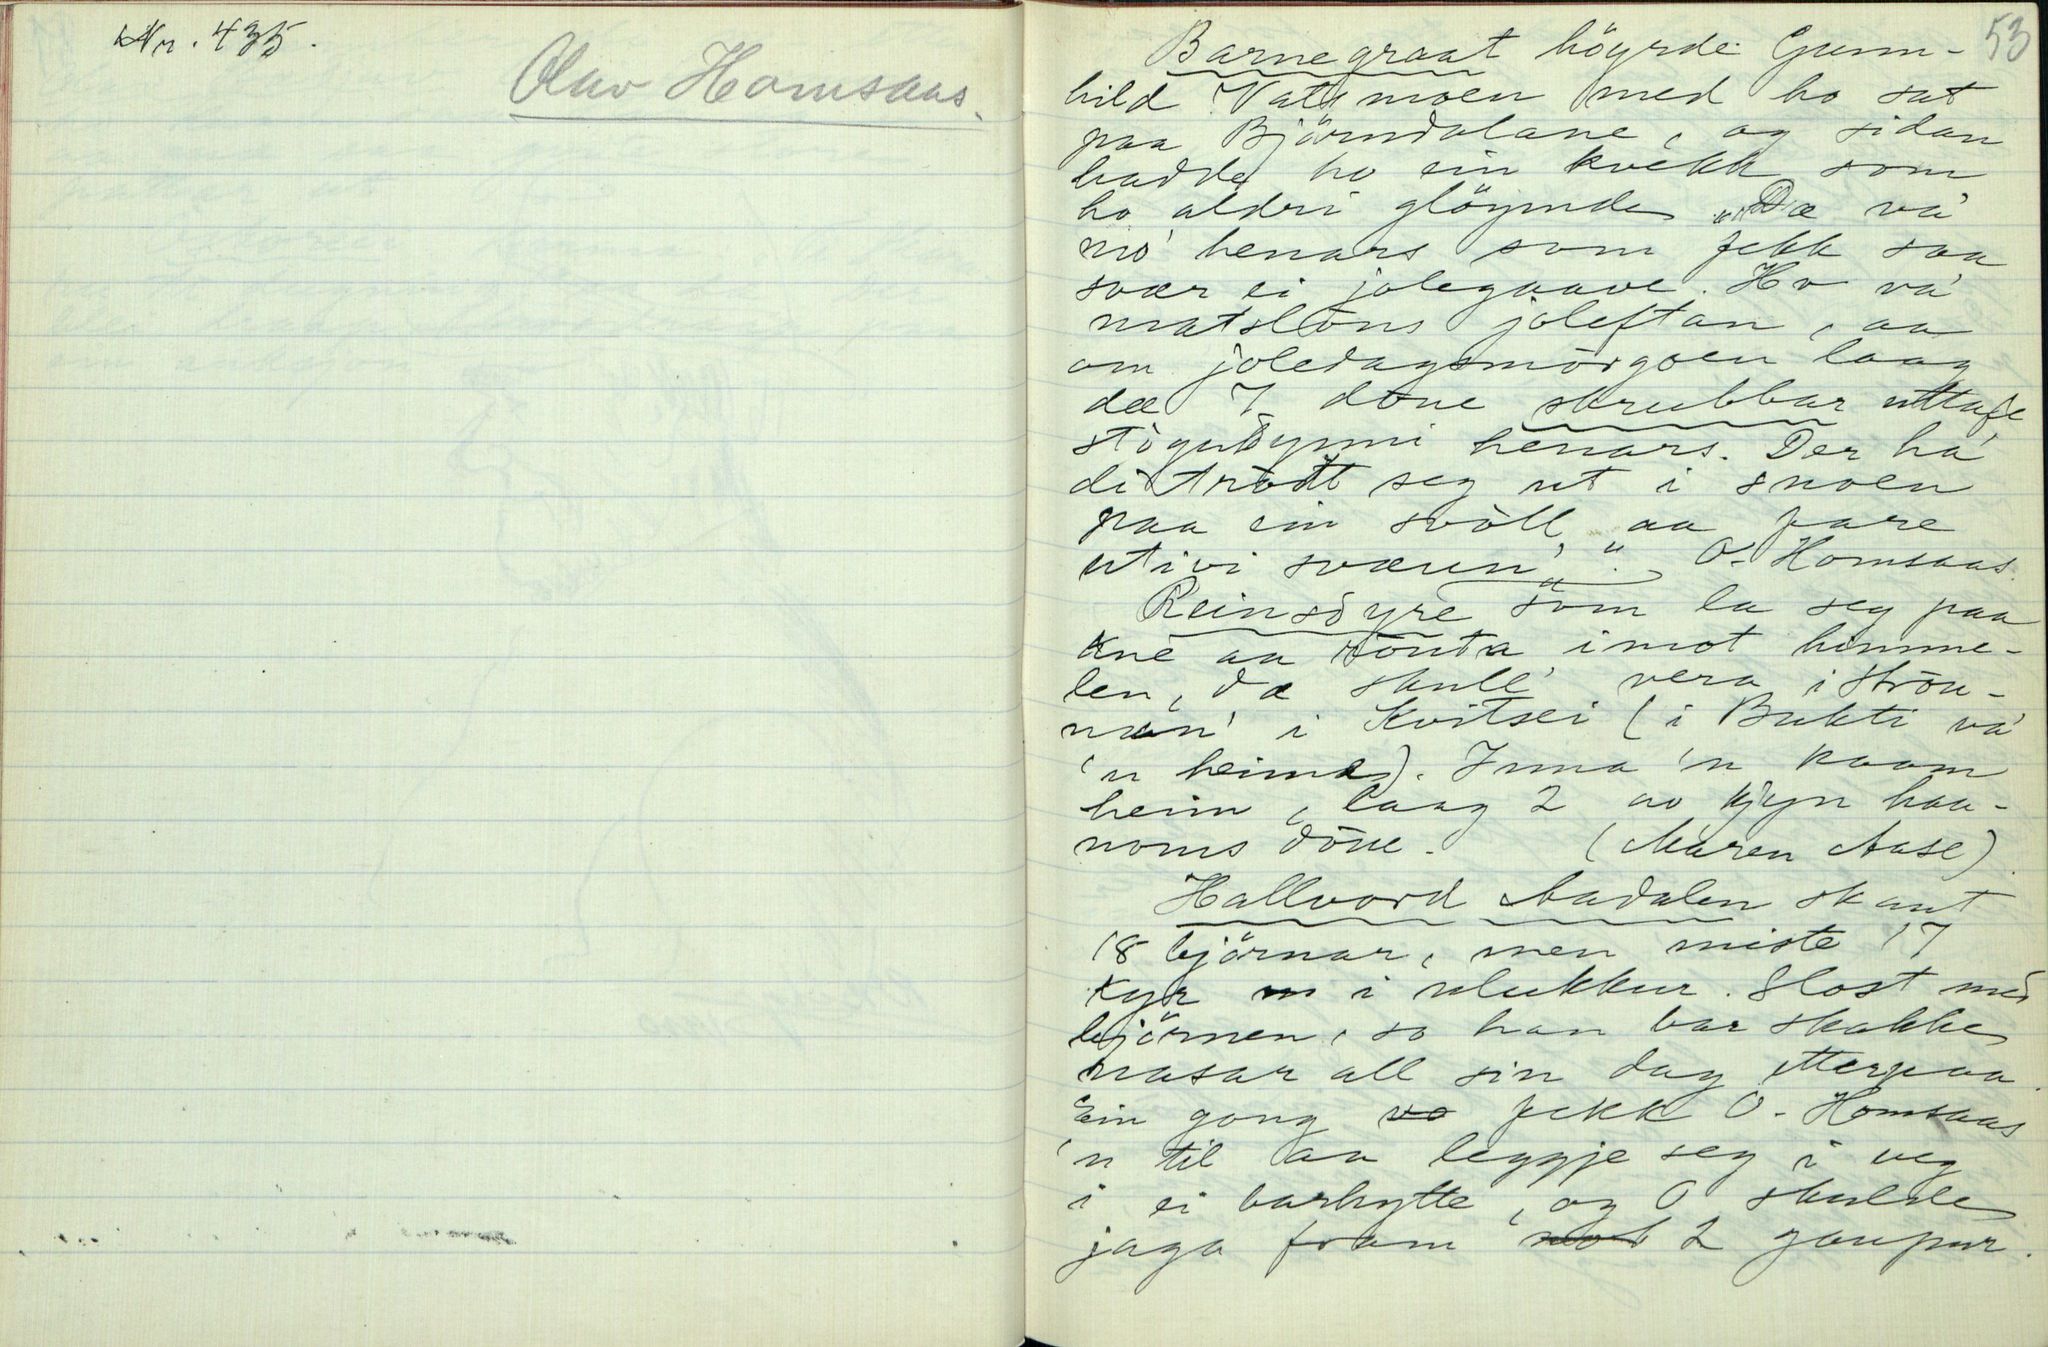 Nr. 435.
Olav Homsaas.
53
Barnegraat höyrde Gunn-
hild Vatsmoen med ho sat
paa Björndalane, og sidan
hadde ho ein kvekk som
ho aldri glöymde. "Dæ va'
mo' henars som fekk saa
svær ei jolegaave. Ho va'
matslöns joleftan, aa
om joledagsmörgoen laag
dæ 7 döue skrubbar uttafe
stöguðynni henars. Der ha'
di tröitt seg ut i snoen
paa ein svöll, aa fare
utivi sværen'." O. Homsaas.
Reinsdyre som la seg paa
kne aa röuta imot himme-
len, dæ skull' vera i Ströu-
män' i Kvitsei (i Bukti va'
'n heime). Inna 'n kaam
heim, laag 2 av kjyn haa-
noms döue. (Maren Aase).
Hallvord Aadalen skaut
18 björnar, men miste 17
kyr i ulukkur. Slost med
björnen, so han bar skakke
nasar all sin dag etterpaa.
Ein gong fekk O. Homsaas
'n til aa leggje seg i veg
i ei barhytte, og O skulde
jaga fram 2 gaupur.